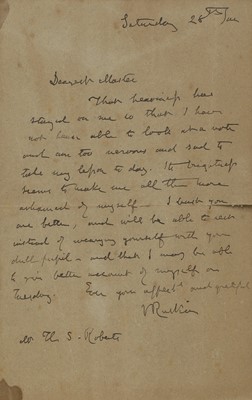 Saturday 28th Jan
Dearest Master
That heaviness has
stayed on me so that I have
not been able to look at a note
and am too nervous and sad to
take my lesson to day. Its brightness
seems to make me all the more
ashamed of myself - I trust you
are better, and will be able to rest
instead of wearying yourself with your
dull pupil - and that I may be able
to give better account of myself on
Tuesday. Ever your affect and grateful
J Ruskin
The S. Roberts